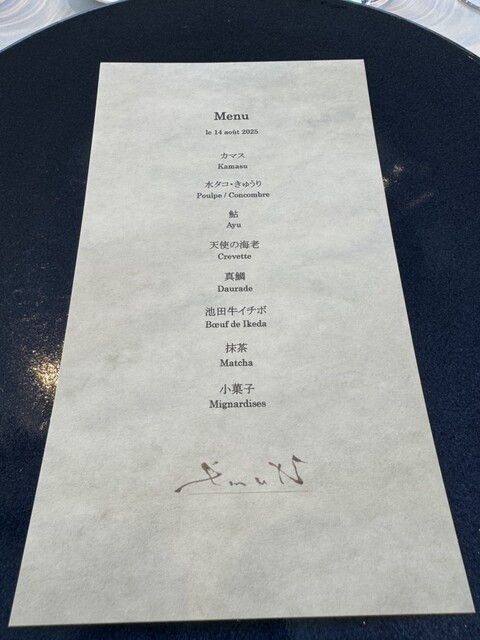 Menu
le 14 août 2025
カマス
Kamasu
水タコ・きゅうり
Poulpe / Concombre
鮎
Ayu
天使の海老
Crevette
真鯛
Daurade
池田牛イチボ
Bœuf de Ikeda
抹茶
Matcha
小菓子
Mignardises